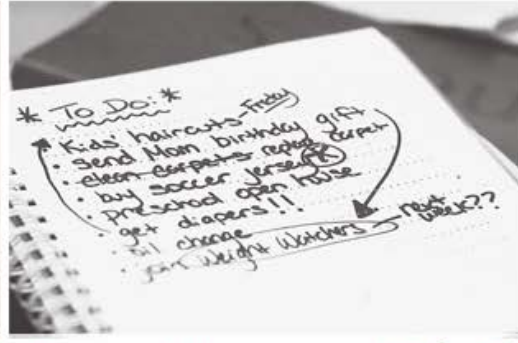 * To Do: *
• Kids' haircuts - Friday
• Send Mom birthday gift
• clean carpets replace carpet
• buy soccer jersey
• preschool open house
• get diapers!!
• oil change
• join Weight Watchers - next week??